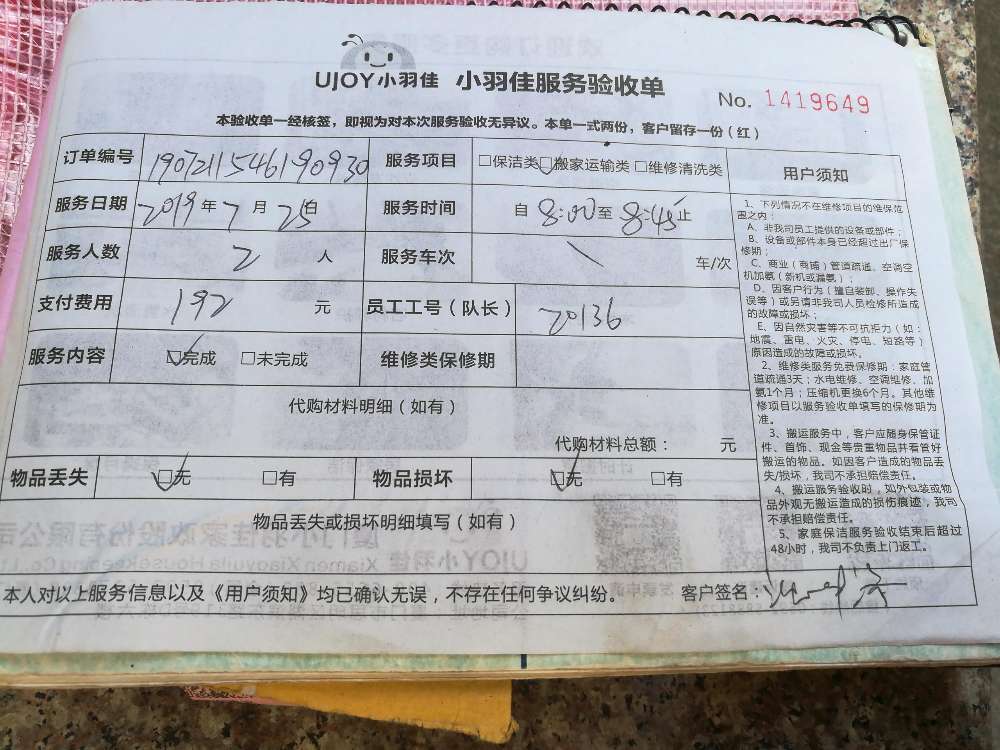 UJOY小羽佳 小羽佳服务验收单
No. 1419649
本验收单一经核签，即视为对本次服务验收无异议。本单一式两份，客户留存一份（红）
订单编号 190721154619093０ 服务项目 □保洁类 □搬家运输类 □维修清洗类
服务日期 2019年7月25日 服务时间 自8:00至8:45止
服务人数 2 人 服务车次 \ 车/次
支付费用 192 元 员工工号（队长） 20136
服务内容 □完成 □未完成 维修类保修期
代购材料明细（如有）
代购材料总额： 元
物品丢失 □无 □有 物品损坏 □无 □有
物品丢失或损坏明细填写（如有）
用户须知
1、下列情况不在维修项目的维保范
围之内：
A、非我司员工提供的设备或部件；
B、设备或部件本身已经超过出厂保
修期；
C、商业（商铺）管道疏通、空调空
机加氨（新机或漏氨）；
D、因客户行为（擅自装卸、操作失
误等）或另请非我司人员检修所造成
的故障或损坏；
E、因自然灾害等不可抗拒力（如：
地震、雷电、火灾、停电、短路等）
原因造成的故障或损坏。
2、维修类服务免费保修期：家庭管
道疏通3天；水电维修、空调维修、加
氨1个月；压缩机更换6个月。其他维
修项目以服务验收单填写的保修期为
准。
3、搬运服务中，客户应随身保管证
件、首饰、现金等贵重物品并看管好
搬运的物品。如因客户造成的物品丢
失/损坏，我司不承担赔偿责任。
4、搬运服务验收时，如外包装或物
品外观无搬运造成的损伤痕迹，我司
不承担赔偿责任。
5、家庭保洁服务验收结束后超过
48小时，我司不负责上门返工。
本人对以上服务信息以及《用户须知》均已确认无误，不存在任何争议纠纷。 客户签名：